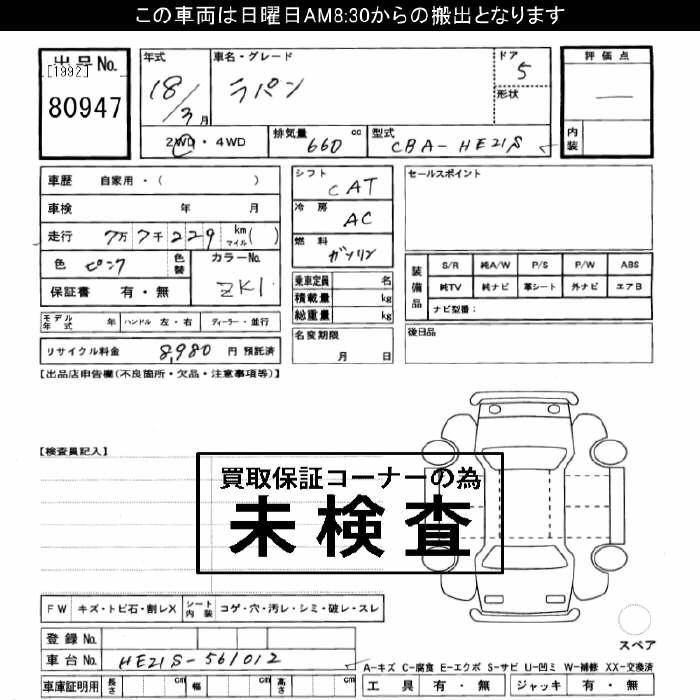 この車両は日曜日AM8:30からの搬出となります
出品No.
[1992]
80947
年式
18/3月
車名・グレード
ラパン
ドア
5
形状
評価点
—
内装
2WD・4WD
排気量 660 cc
型式 CBA-HE21S
車歴 自家用・( )
車検 年 月
走行 7万7千229 km マイル( )
色 ピンク
色替
カラーNo.
ZK1
保証書 有・無
シフト
CAT
冷房
AC
燃料
ガソリン
乗車定員 名
積載量 kg
総重量 kg
セールスポイント
装備品
S/R 純A/W P/S P/W ABS
純TV 純ナビ 革シート 外ナビ エアB
ナビ型番:
モデル年式 年 ハンドル 左・右 ディーラー・並行
リサイクル料金 8,980 円 預託済
名変期限
月 日
後日品
【出品店申告欄(不良箇所・欠品・注意事項等)】
【検査員記入】
買取保証コーナーの為
未検査
FW キズ・トビ石・割レX シート内装 コゲ・穴・汚レ・シミ・破レ・スレ
登録No.
車台No. HE21S-561012
車庫証明用 長さ cm 幅 cm 高さ cm
スペア
A-キズ C-腐食 E-エクボ S-サビ U-凹ミ W-補修 XX-交換済
工具 有・無 ジャッキ 有・無